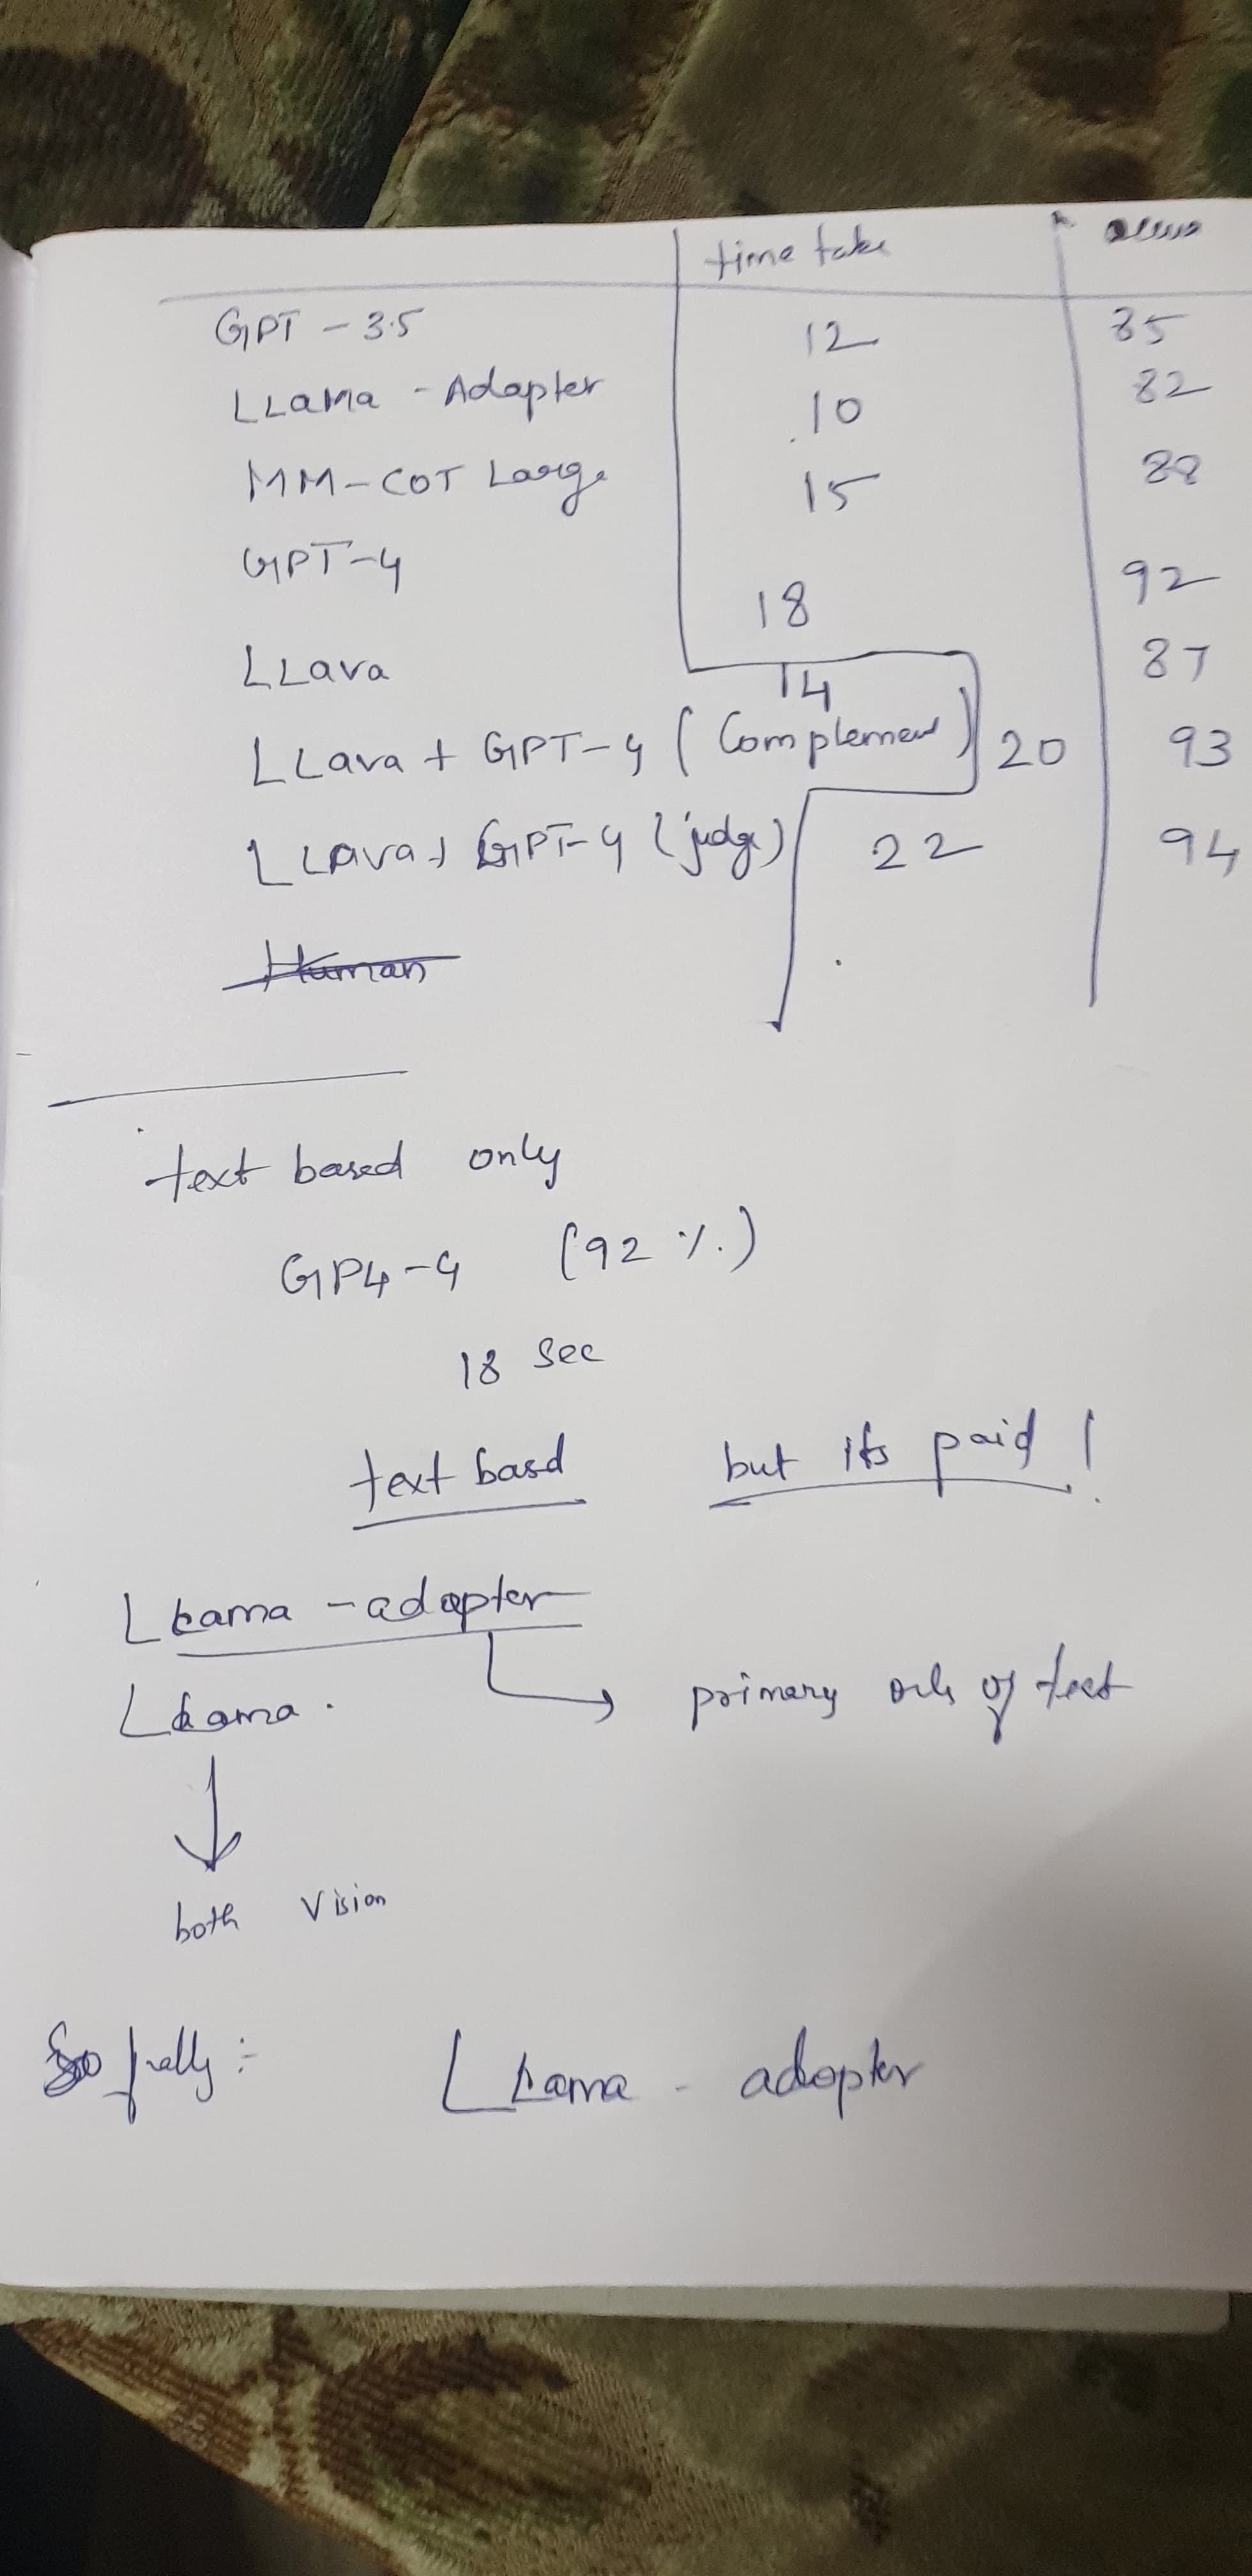 time take
GPT - 3.5 12 85
LLama - Adapter 10 82
MM-COT Large 15 88
GPT-4 18 92
LLava 14 87
LLava + GPT-4 (Complement) 20 93
LLava + GPT-4 (judge) 22 94
Human
text based only
GP4-4 (92 %)
18 Sec
text basd but its paid !
LLama - adapter
LLama . primary of text
both Vision
So : LLama - adopter